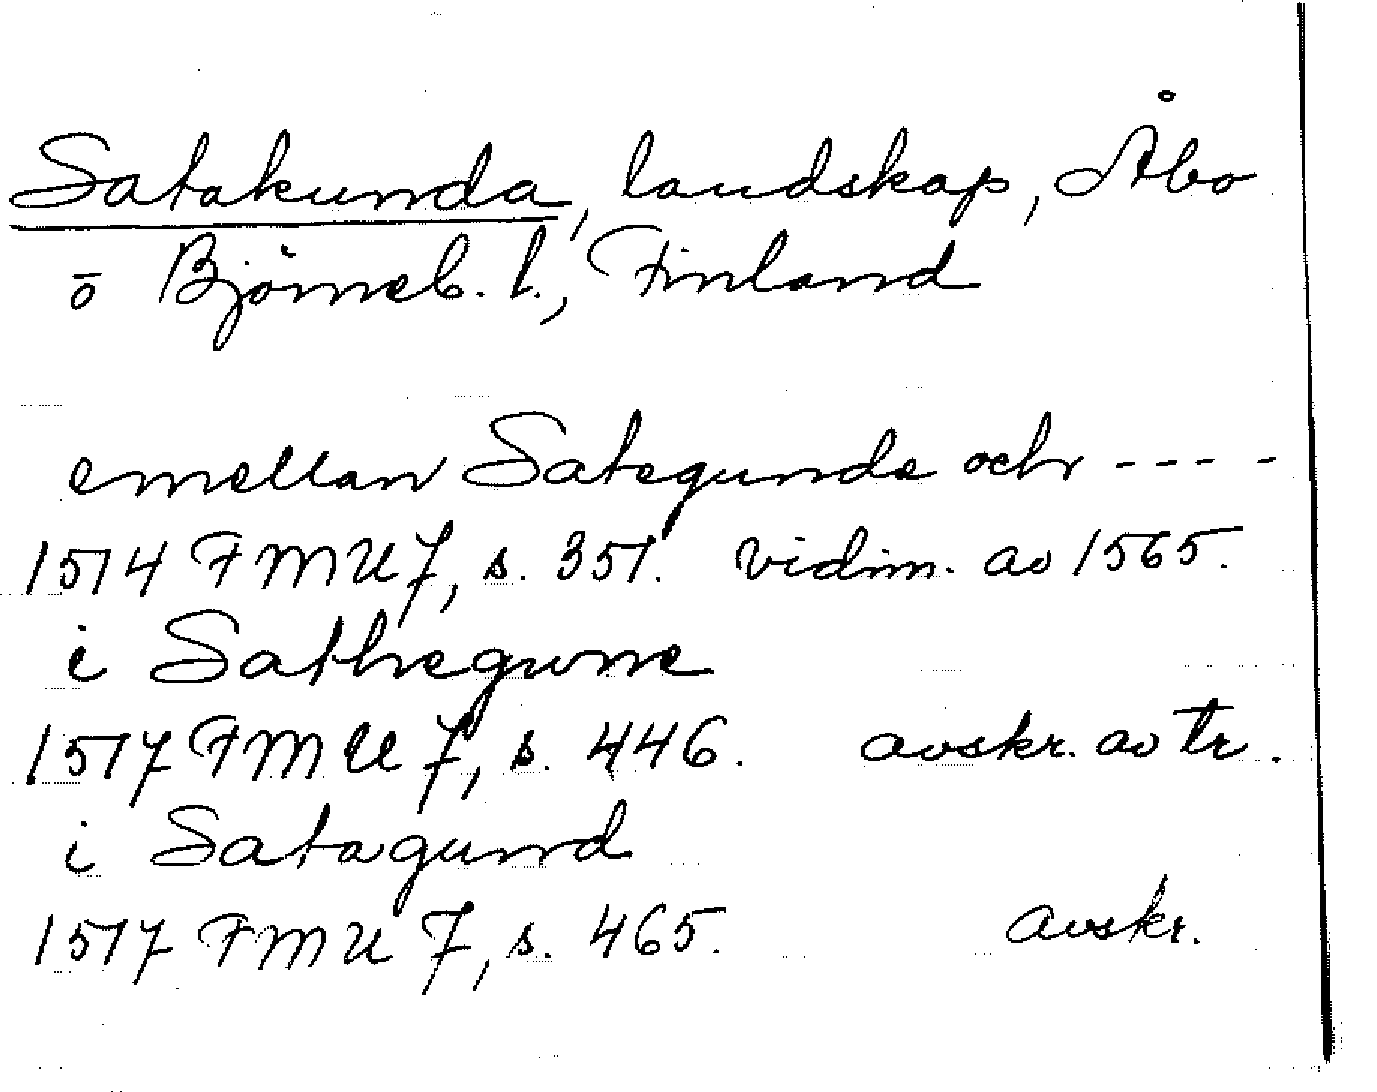 Satakunda, landskap, Åbo
o Björneb. l., Finland
emellan Sategunde och ----
1514 FMU 7, s. 351. vidim. av 1565.
i Sathegwne
1517 FMU 7, s. 446. avskr. av tr.
i Satagund
1517 FMU 7, s. 465. avskr.